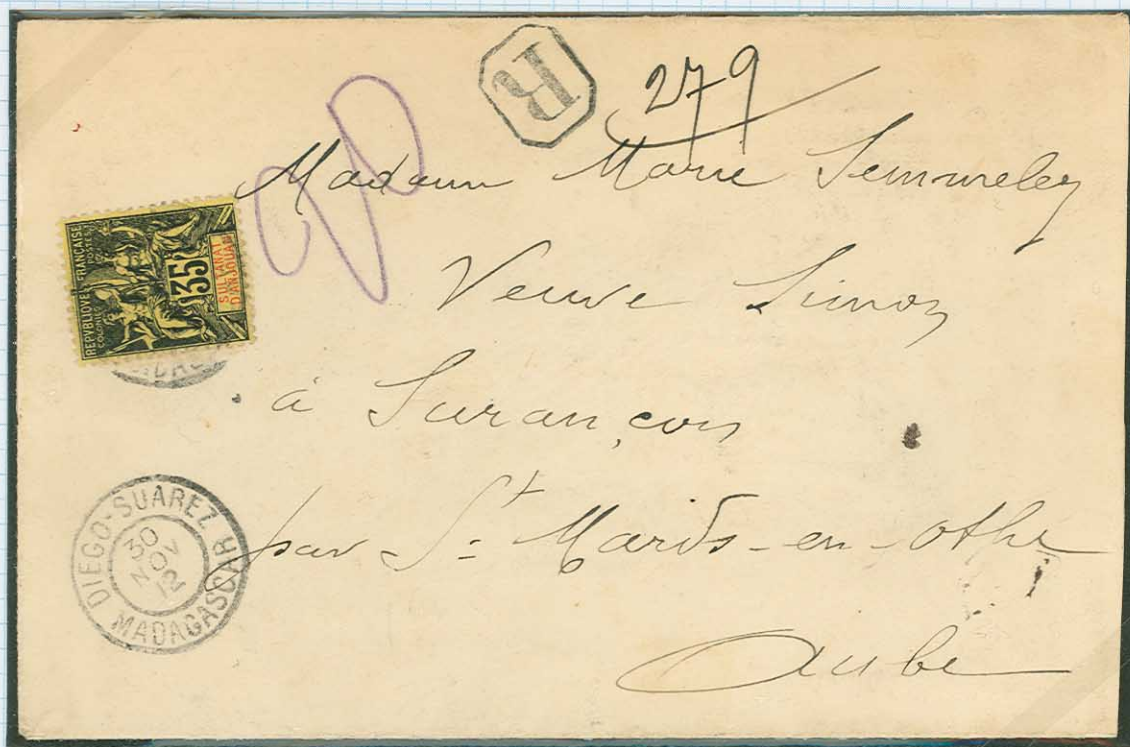 R
279
Madame Marie
Veuve Simon
à Surançon
par St Mards-en-Othe
Aube
REPVBLIQVE FRANÇAISE
COLONIES POSTES
35
SULTANAT
D'ANJOUAN
DIEGO-SUAREZ
30
NOV
12
MADAGASCAR